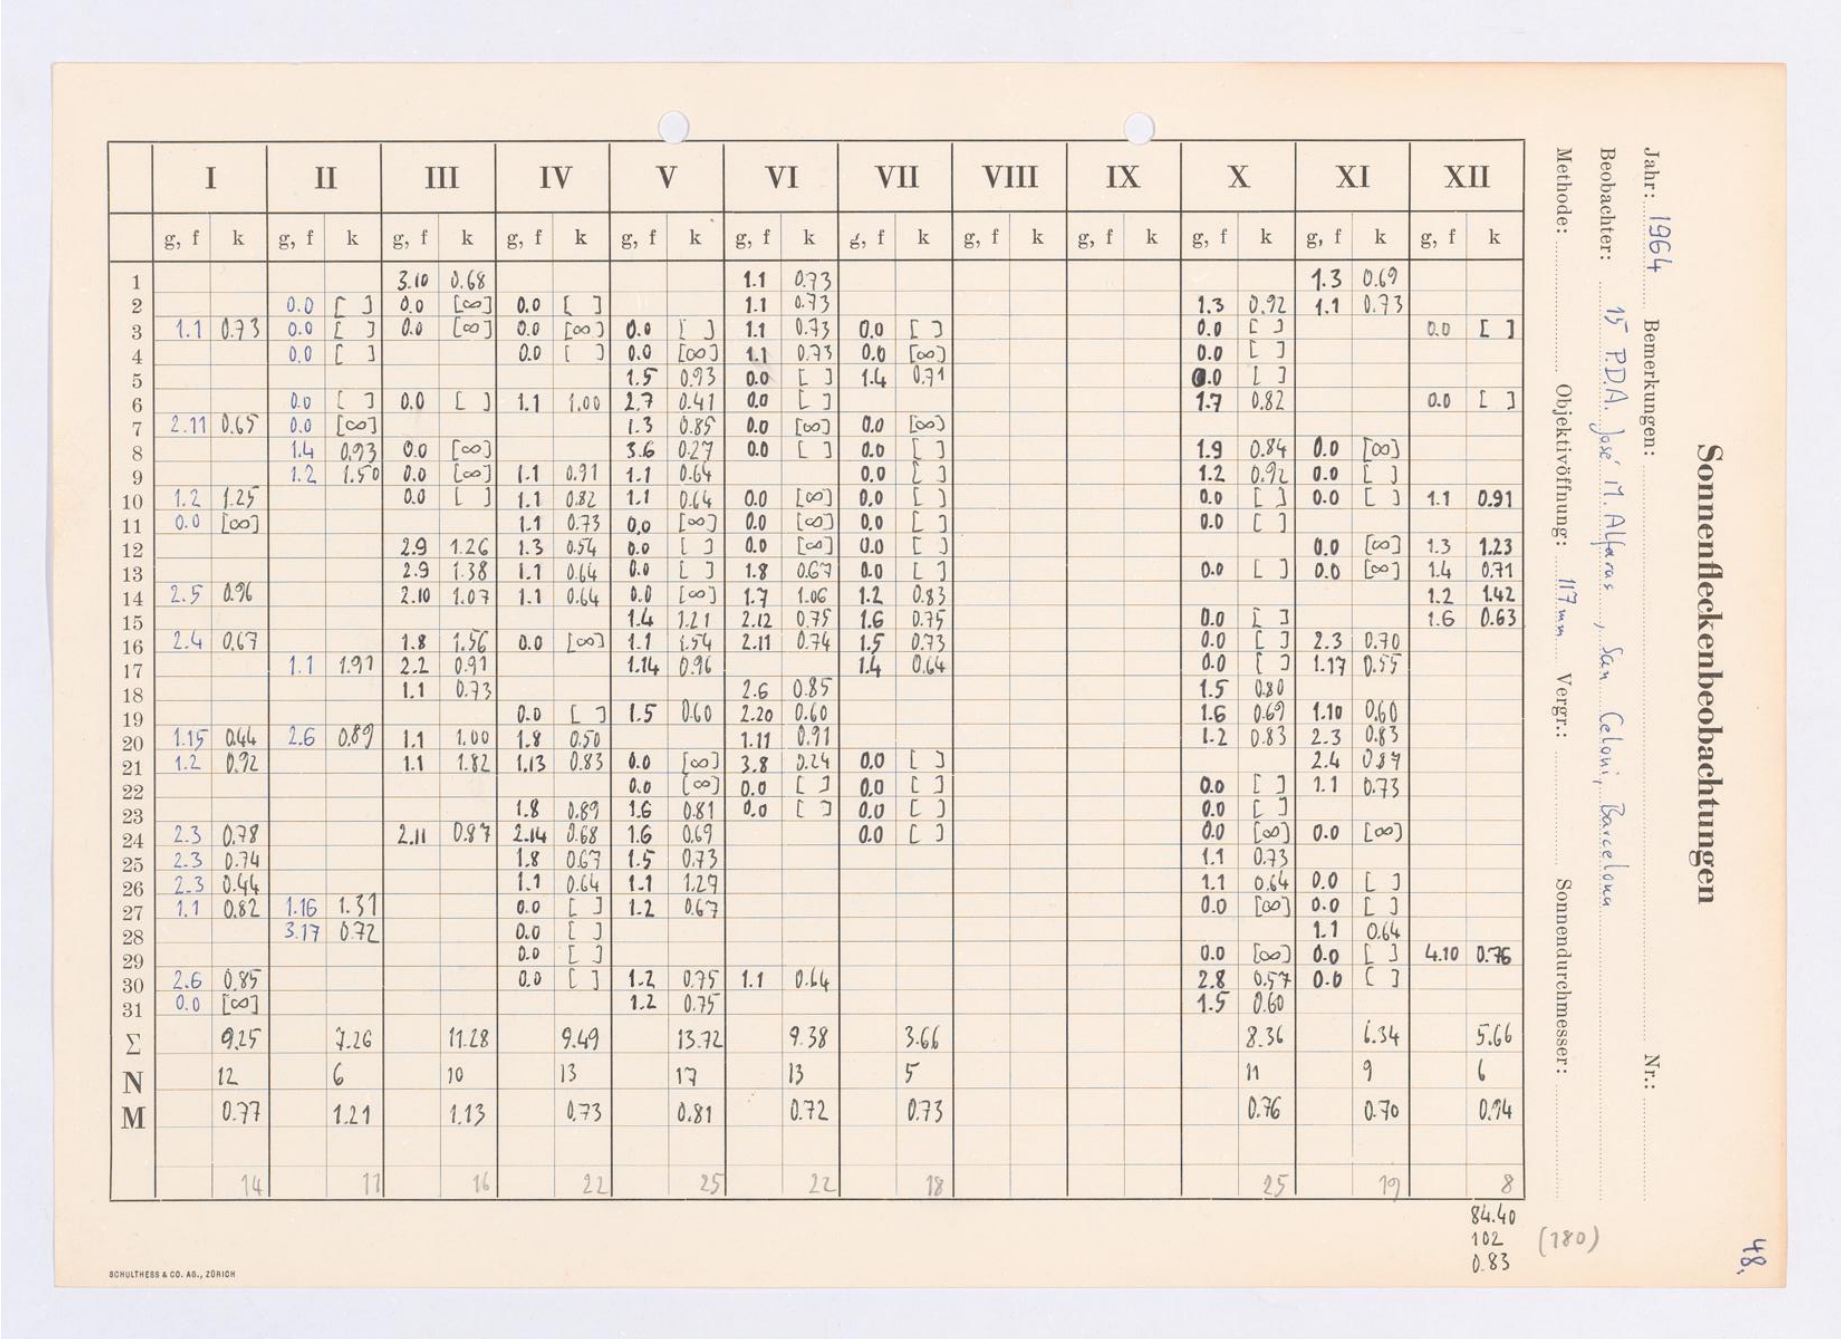 Sonnenfleckenbeobachtungen
Jahr: 1964 Bemerkungen: Nr.:
Beobachter: 15 P.D.A. José M. Alfaras, San Celoni, Barcelona
Methode: Objektivöffnung: 117 mm Vergr.: Sonnendurchmesser:
I II III IV V VI VII VIII IX X XI XII
g, f k g, f k g, f k g, f k g, f k g, f k g, f k g, f k g, f k g, f k g, f k g, f k
1 3.10 0.68 1.1 0.73 1.3 0.69
2 0.0 [ ] 0.0 [∞] 0.0 [ ] 1.1 0.73 1.3 0.92 1.1 0.73
3 1.1 0.73 0.0 [ ] 0.0 [∞] 0.0 [∞] 0.0 [ ] 1.1 0.73 0.0 [ ] 0.0 [ ] 0.0 [ ]
4 0.0 [ ] 0.0 [ ] 0.0 [∞] 1.1 0.73 0.0 [∞] 0.0 [ ]
5 1.5 0.93 0.0 [ ] 1.4 0.71 0.0 [ ]
6 0.0 [ ] 0.0 [ ] 1.1 1.00 2.7 0.41 0.0 [ ] 1.7 0.82 0.0 [ ]
7 2.11 0.65 0.0 [∞] 1.3 0.85 0.0 [∞] 0.0 [∞]
8 1.4 0.93 0.0 [∞] 3.6 0.27 0.0 [ ] 0.0 [ ] 1.9 0.84 0.0 [∞]
9 1.2 1.50 0.0 [∞] 1.1 0.91 1.1 0.64 0.0 [ ] 1.2 0.92 0.0 [ ]
10 1.2 1.25 0.0 [ ] 1.1 0.82 1.1 0.64 0.0 [∞] 0.0 [ ] 0.0 [ ] 0.0 [ ] 1.1 0.91
11 0.0 [∞] 1.1 0.73 0.0 [∞] 0.0 [∞] 0.0 [ ] 0.0 [ ]
12 2.9 1.26 1.3 0.54 0.0 [ ] 0.0 [∞] 0.0 [ ] 0.0 [∞] 1.3 1.23
13 2.9 1.38 1.1 0.64 0.0 [ ] 1.8 0.67 0.0 [ ] 0.0 [ ] 0.0 [∞] 1.4 0.71
14 2.5 0.96 2.10 1.07 1.1 0.64 0.0 [∞] 1.7 1.06 1.2 0.83 1.2 1.42
15 1.4 1.21 2.12 0.75 1.6 0.75 0.0 [ ] 1.6 0.63
16 2.4 0.67 1.8 1.56 0.0 [∞] 1.1 1.54 2.11 0.74 1.5 0.73 0.0 [ ] 2.3 0.70
17 1.1 1.91 2.2 0.91 1.14 0.96 1.4 0.64 0.0 [ ] 1.17 0.55
18 1.1 0.73 2.6 0.85 1.5 0.80
19 0.0 [ ] 1.5 0.60 2.20 0.60 1.6 0.69 1.10 0.60
20 1.15 0.44 2.6 0.89 1.1 1.00 1.8 0.50 1.11 0.91 1.2 0.83 2.3 0.83
21 1.2 0.92 1.1 1.82 1.13 0.83 0.0 [∞] 3.8 0.24 0.0 [ ] 2.4 0.87
22 0.0 [∞] 0.0 [ ] 0.0 [ ] 0.0 [ ] 1.1 0.73
23 1.8 0.89 1.6 0.81 0.0 [ ] 0.0 [ ] 0.0 [ ]
24 2.3 0.78 2.11 0.87 2.14 0.68 1.6 0.69 0.0 [ ] 0.0 [∞] 0.0 [∞]
25 2.3 0.74 1.8 0.67 1.5 0.73 1.1 0.73
26 2.3 0.44 1.1 0.64 1.1 1.27 1.1 0.64 0.0 [ ]
27 1.1 0.82 1.16 1.31 0.0 [ ] 1.2 0.67 0.0 [∞] 0.0 [ ]
28 3.17 0.72 0.0 [ ] 1.1 0.64
29 0.0 [ ] 0.0 [∞] 0.0 [ ] 4.10 0.76
30 2.6 0.85 0.0 [ ] 1.2 0.75 1.1 0.64 2.8 0.57 0.0 [ ]
31 0.0 [∞] 1.2 0.75 1.5 0.60
Σ 9.25 7.26 11.28 9.49 13.72 9.38 3.66 8.36 6.34 5.66
N 12 6 10 13 17 13 5 11 9 6
M 0.77 1.21 1.13 0.73 0.81 0.72 0.73 0.76 0.70 0.94
14 11 16 22 25 22 18 25 19 8
84.40
102 (180)
0.83
48.
SCHULTHESS & CO. AG., ZÜRICH